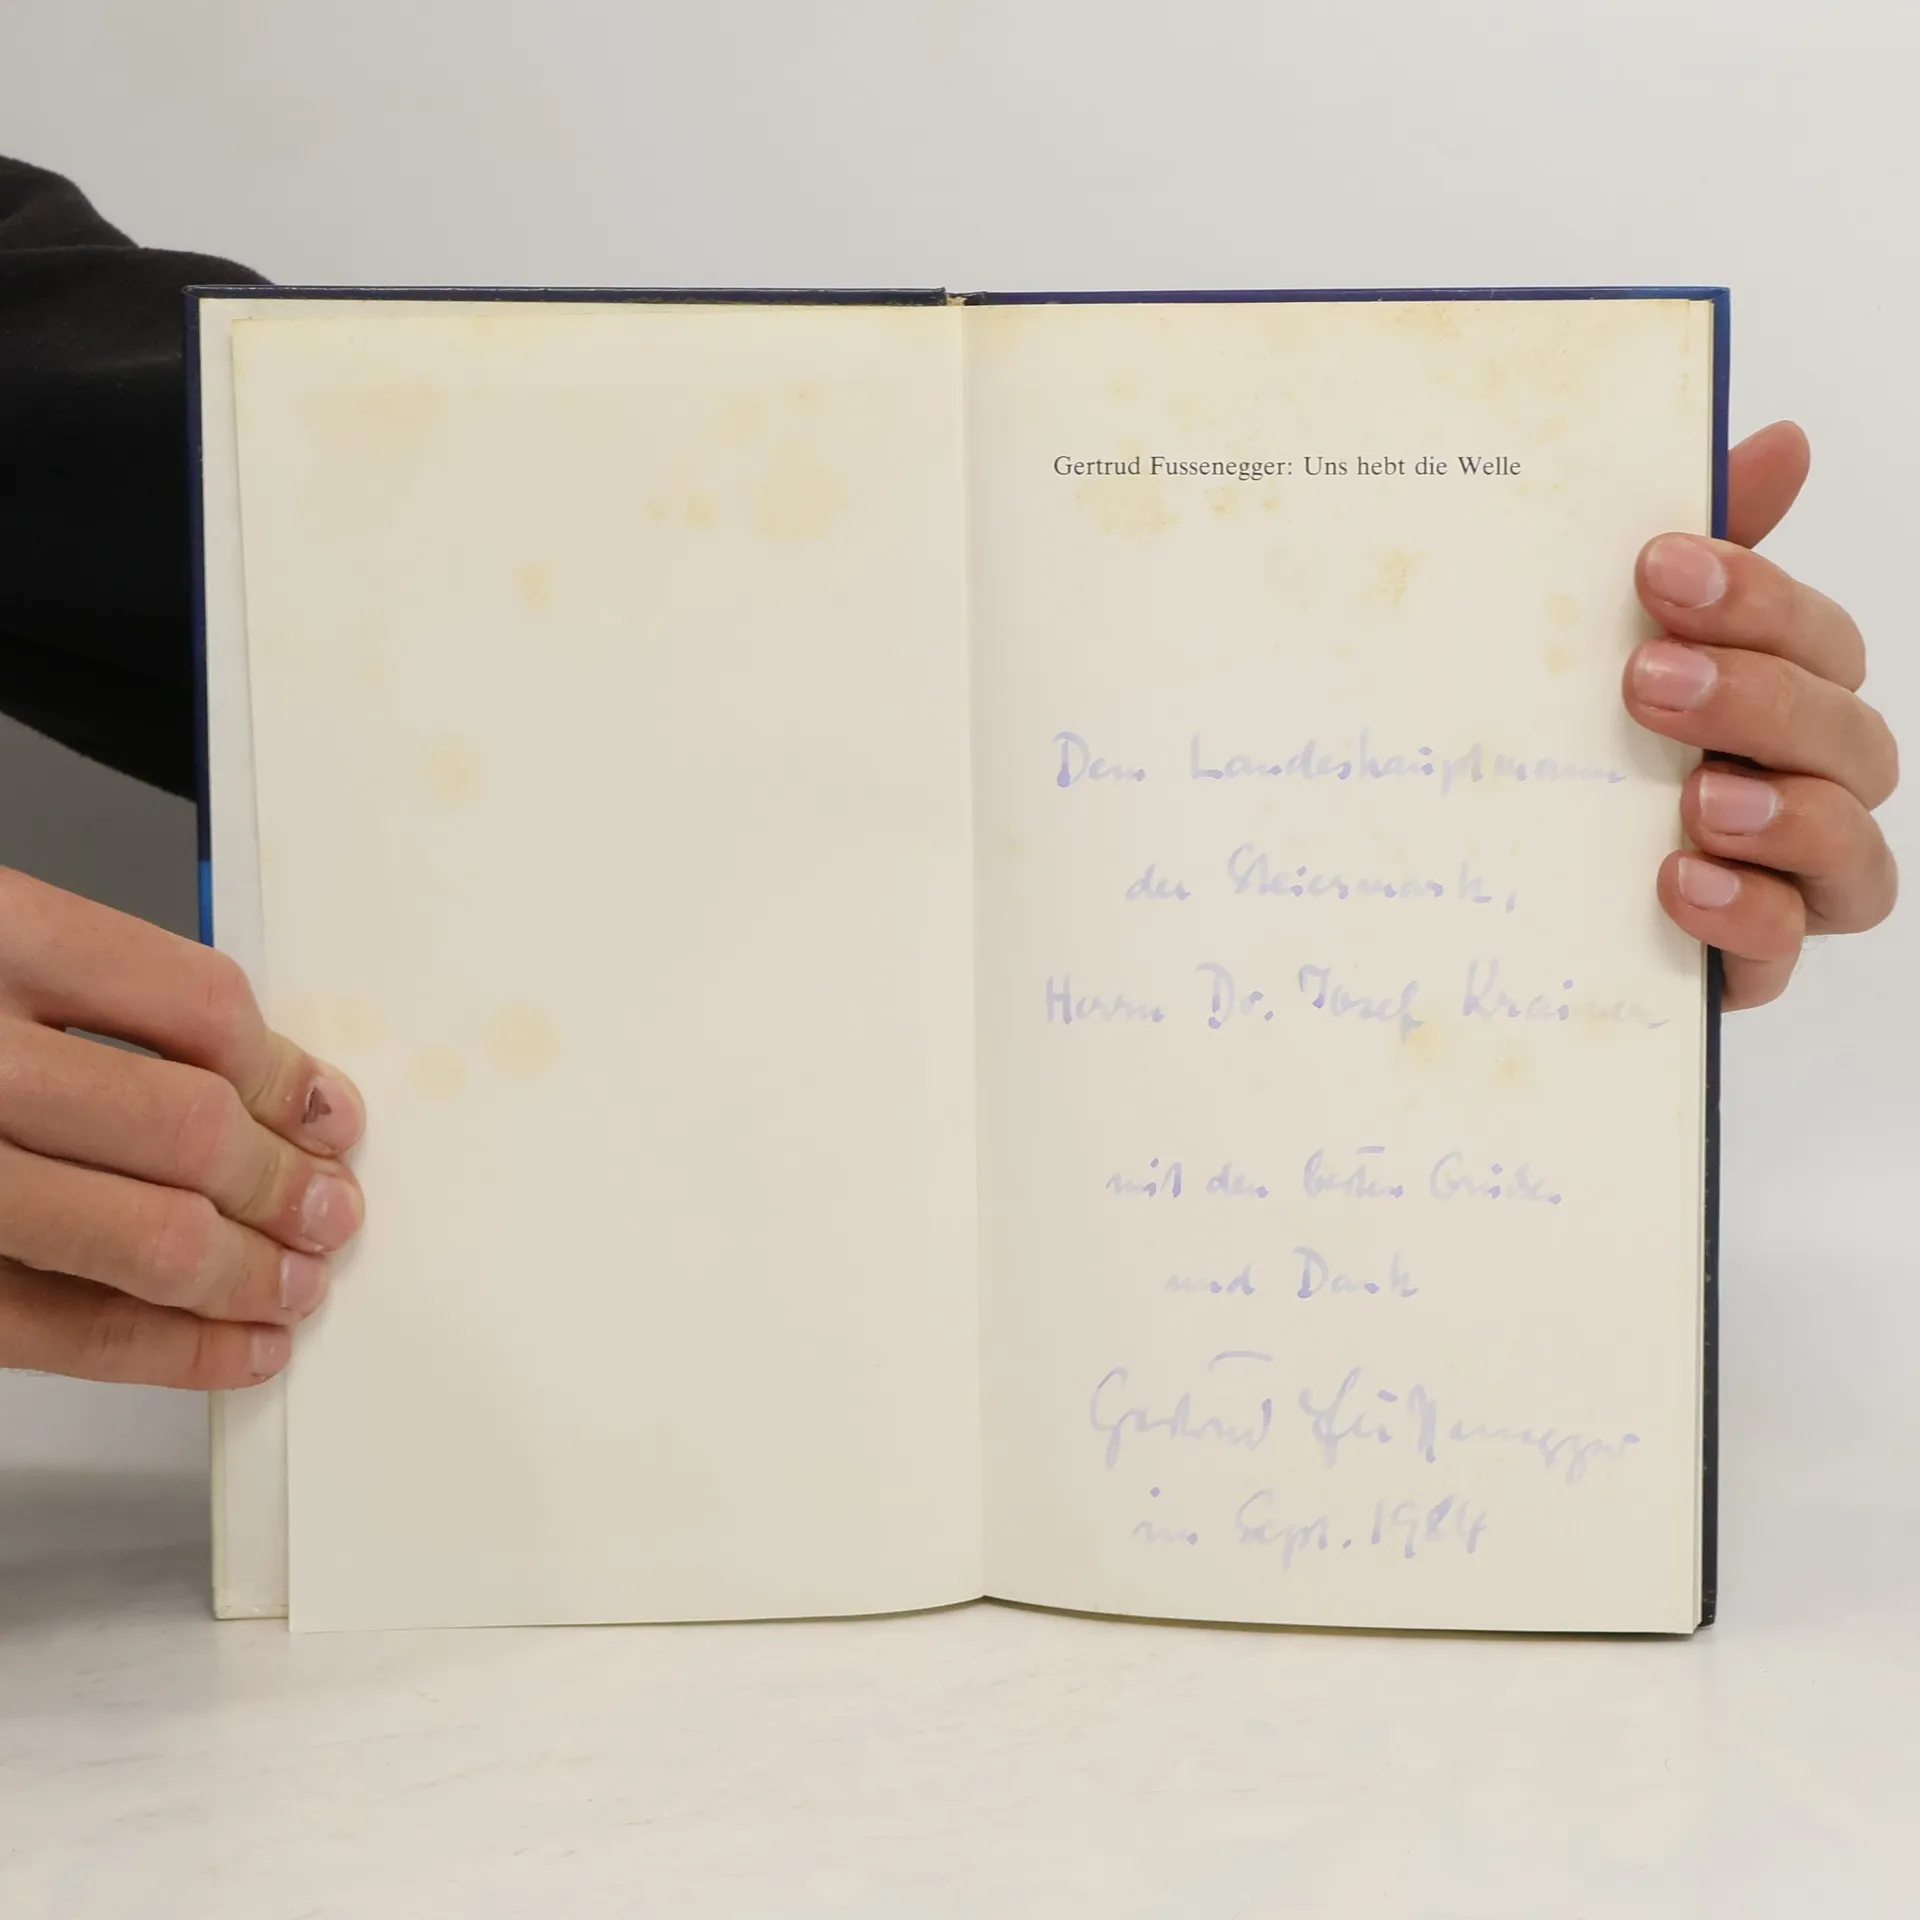 Gertrud Fussenegger: Uns hebt die Welle
Dem Landeshauptmann
der Steiermark,
Herrn Dr. Josef Krainer
mit den besten Grüßen
und Dank
Gertrud Fussenegger
im Sept. 1984